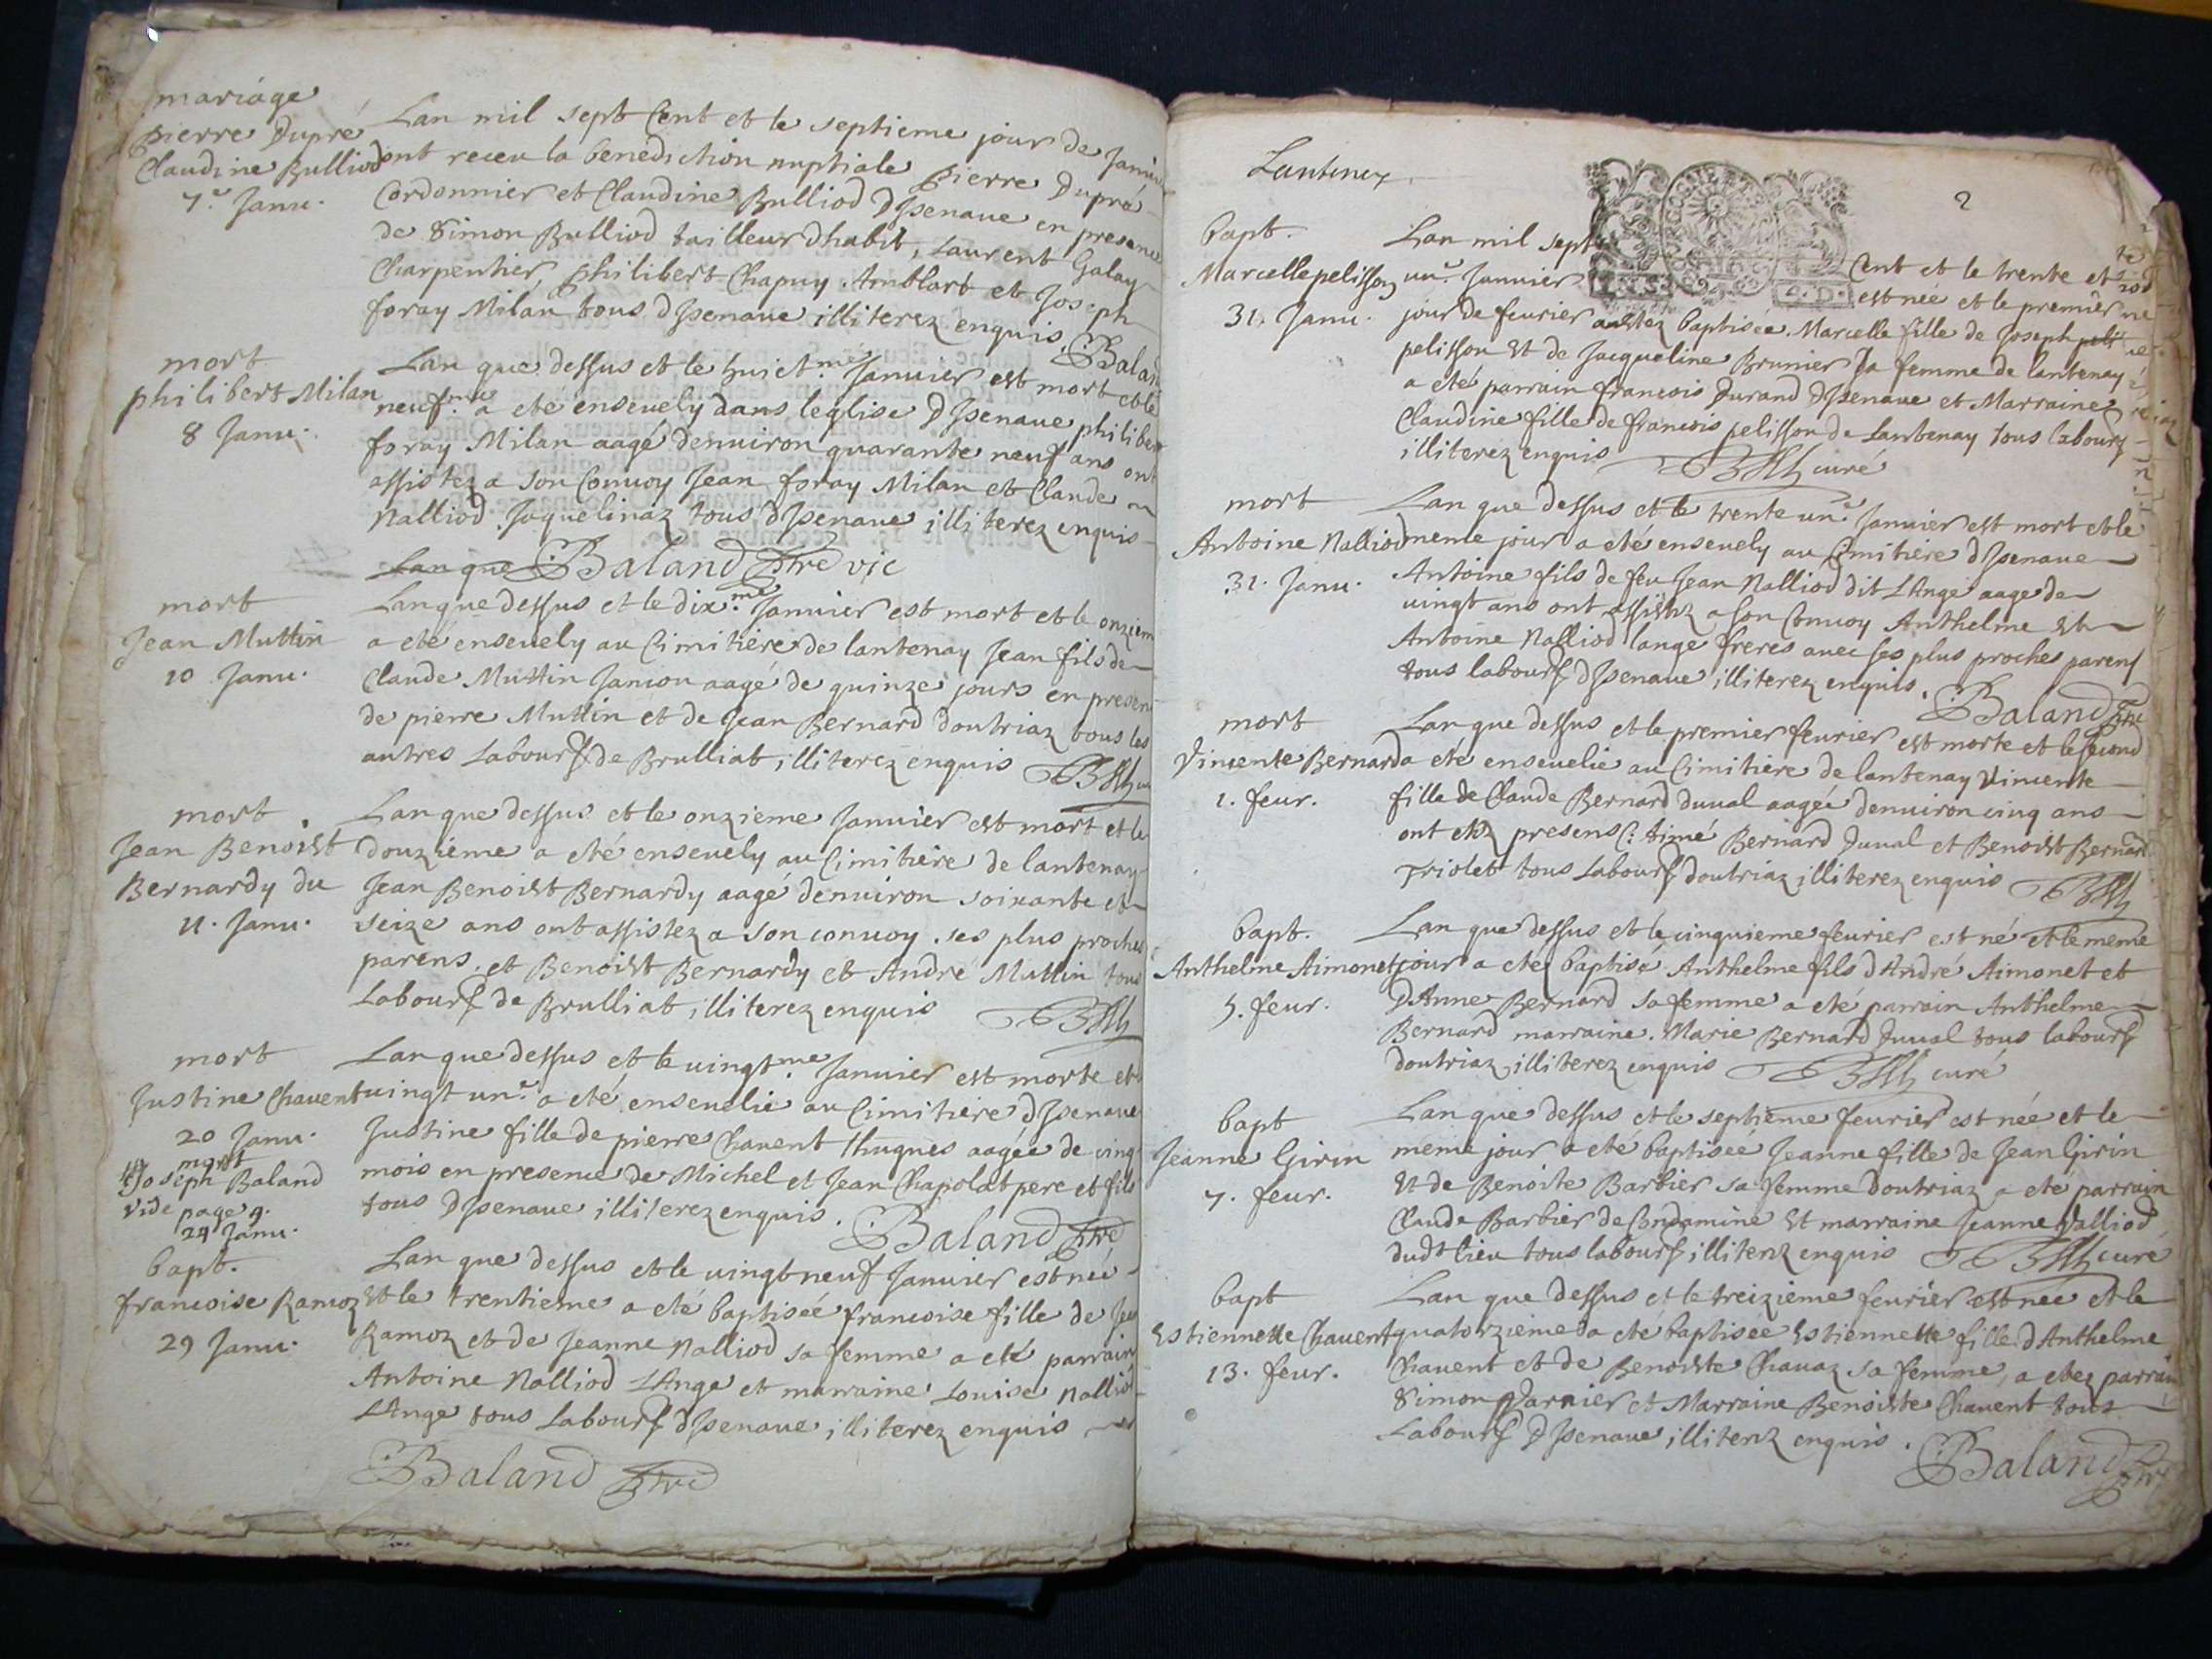 mariage
Pierre Dupré
Claudine Bulliod
7.e Janu.
Lan mil sept Cent et le septieme jour de Janui
ont receu la benediction nuptiale Pierre Dupré
Cordonnier et Claudine Bulliod DJsenaue en presence
de Simon Bulliod tailleur dhabit, Laurent Galay
Charpentier, philibert Chapuy Amblart et Joseph
foray Milan tous dJsenaue illiterez enquis. Balan
mort
philibert Milan
8 Janu.
Lan que dessus et le huict.me Januier est mort et le
neuf.me a eté enseuely dans leglise DJsenaue philiber
foray Milan aagé denuiron quarante neuf ans ont
assistez a son Conuoy Jean foray Milan et Claude
Nalliod Jaquelinaz tous dJsenaue illiterez enquis
Lan que Baland Ptre vic
mort
Jean Muttin
10 Janu.
Lan que dessus et le dix.me Januier est mort et le onziem
a eté enseuely au Cimitière de lantenay Jean fils de
Claude Muttin Janion aagé de quinze jours en presen
de pierre Muttin et de Jean Bernard doutriaz tous les
autres Labours de Brulliat illiterez enquis
mort
Jean Benoist
Bernardy du
11. Janu.
Lan que dessus et le onzieme Januier est mort et le
douzieme a eté enseuely au Cimitière de lantenay
Jean Benoist Bernardy aagé denuiron soixante et
seize ans ont assistez a son conuoy ses plus proches
parens et Benoist Bernardy et André Muttin tous
Labours de Brulliat illiterez enquis
mort
Justine Chauent
20 Janu.
Lan que dessus et le uingt.me Januier est morte et
uingt un.e a eté enseuelie au Cimitière dJsenaue
Justine fille de pierre Chauent Hugues aagée de cinq
mois en presence de Michel et Jean Chapolat pere et fils
tous DJsenaue illiterez enquis. Baland Ptre
mort
Joseph Baland
vide page 9.
24 Janu.
bapt.
francoise Ramoz
29 Janu.
Lan que dessus et le uingt neuf Januier est née
Et le trentieme a eté baptisée francoise fille de Jea
Ramoz et de Jeanne Nalliod sa femme a eté parrain
Antoine Nalliod LAnge et marraine Louise Nalliod
LAnge tous Labours dJsenaue illiterez enquis
Baland Ptre
Lantenay
2
bapt.
Marcelle pelisson
31. Janu.
Lan mil sept Cent et le trente et
un.e Januier est née et le premier
jour de feurier a estez baptisée Marcelle fille de Joseph
pelisson Et de Jacqueline Brunier sa femme de lantenay
a eté parrain francois Durand DJsenaue et Marraine
Claudine fille de francois pelisson de Lantenay tous labours
illiterez enquis curé
mort
Antoine Nalliod
31. Janu.
Lan que dessus et le trente un.e Januier est mort et le
meme jour a eté enseuely au Cimitière dJsenaue
Antoine fils de feu Jean Nalliod dit LAnge aagé de
uingt ans ont assistez a son Conuoy Anthelme Et
Antoine Nalliod lange freres auec ses plus proches parens
tous labours dJsenaue illiterez enquis. Baland Ptre
mort
Vincente Bernard
1. feur.
Lan que dessus et le premier feurier est morte et le second
a eté enseuelie au Cimitière de lantenay Vincente
fille de Claude Bernard duual aagée denuiron cinq ans
ont etez presens C: Aimé Bernard Duual et Benoist Bernard
Triolet tous Labours doutriaz illiterez enquis
bapt.
Anthelme Aimonet
5. feur.
Lan que dessus et le cinquieme feurier est né et le meme
jour a eté baptisé Anthelme fils dAndré Aimonet et
DAnne Bernard sa femme a eté parrain Anthelme
Bernard marraine Marie Bernard Duual tous labours
doutriaz illiterez enquis curé
bapt
Jeanne Girin
7. feur.
Lan que dessus et le septieme feurier est née et le
meme jour a eté baptisée Jeanne fille de Jean Girin
Et de Benoite Barbier sa femme doutriaz a eté parrain
Claude Barbier de Condamine Et marraine Jeanne Valliod
dudt lieu tous labours illiterez enquis curé
bapt
Estiennette Chauent
13. feur.
Lan que dessus et le treizieme feurier est née et le
quatorzieme a eté baptisée Estiennette fille dAnthelme
Chauent et de Benoiste Chauaz sa femme, a etez parrain
Simon Garnier et Marraine Benoiste Chauent tous
Labours DJsenaue illiterez enquis. Baland Ptre